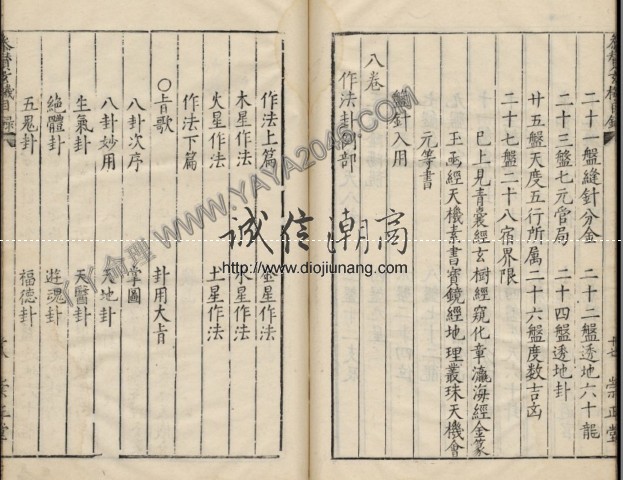 二十一盤縫針分金 二十二盤透地六十龍
二十三盤七元管局 二十四盤透地卦
廿五盤天度五行所屬 二十六盤度数吉凶
二十七盤二十八宿界限
已上見青囊經玄樹經窺化章瀛海經金篆
玉凾經天機素書寳鏡經地理叢珠天機會
元等書
針入用
八卷
作法卦例部
作法上篇 金星作法
木星作法 水星作法
火星作法 土星作法
作法下篇
○㫖歌 卦用大㫖
八卦次序 掌圖
八卦妙用 天地卦
生氣卦 天醫卦
絶體卦 遊魂卦
五鬼卦 福德卦
崇正堂
誠信潮商
http://www.diojiunang.com
YY命理 WWW.YAYA2046.COM